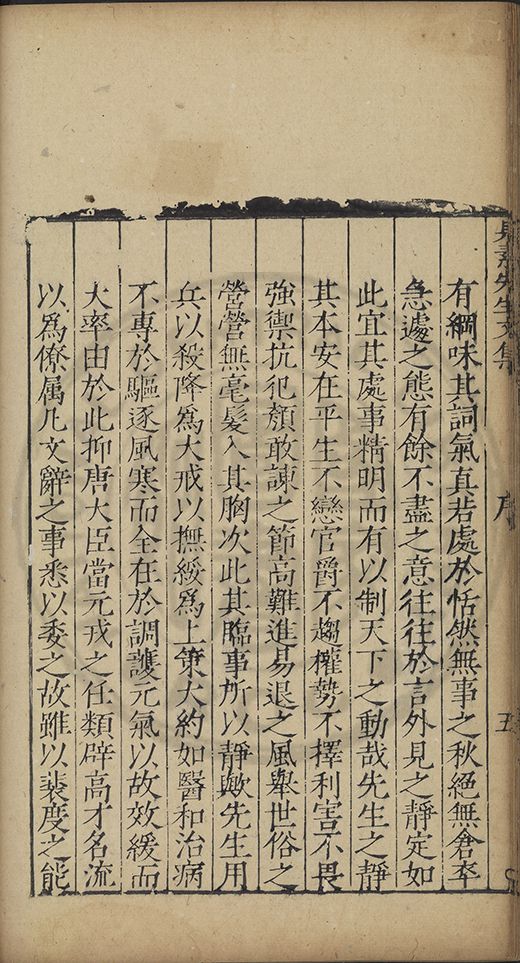 先生文集
序
五
有綱味其詞氣真若處於恬然無事之秋絕無倉卒
急遽之態有餘不盡之意往往於言外見之靜定如
此宜其處事精明而有以制天下之動哉先生之靜
其本安在平生不戀官爵不趨權勢不擇利害不畏
強禦抗犯顏敢諫之節高難進易退之風舉世俗之
營營無毫髮入其胸次此其臨事所以靜歟先生用
兵以殺降為大戒以撫綏為上策大約如醫和治病
不專於驅逐風寒而全在於調護元氣以故效緩而
大率由於此抑唐大臣當元戎之任類辟高才名流
以為僚属凡文辭之事悉以委之故雖以裴度之能